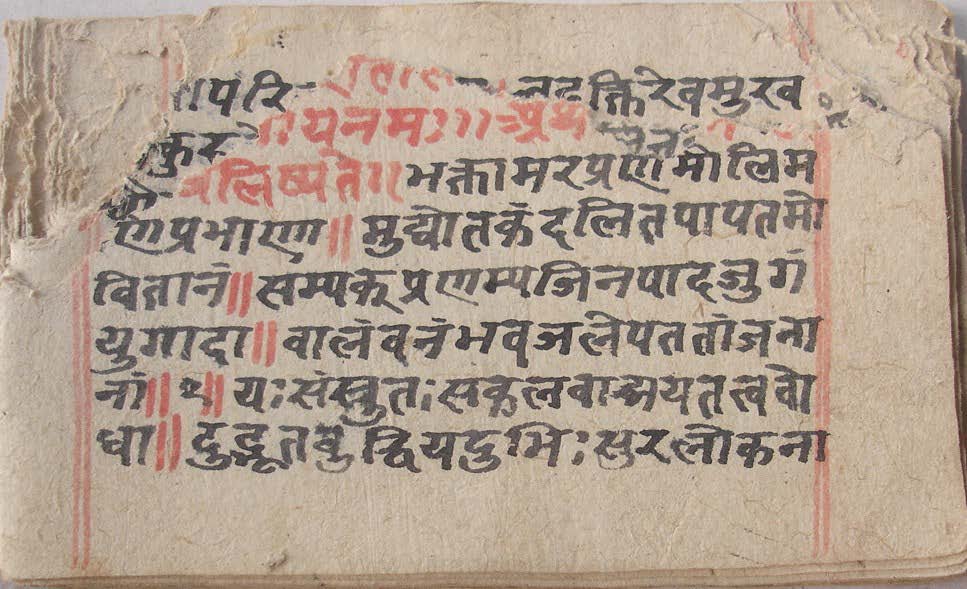 परि क्तिरेवमुरव
यनमः॥
लिष्यते॥भक्तामरप्रणमोलिम
णिप्रभाण॥मुद्योतकंदलितपापतमो
वितानं॥सम्यक्प्रणम्यजिनपादजुगं
युगादा॥वालंवनंभवजलेपततांजना
नां॥१॥यःसंस्तुतःसकलवाङ्मयतत्ववो
धा॥दुद्भूतबुद्धियदुभिःसुरलोकना